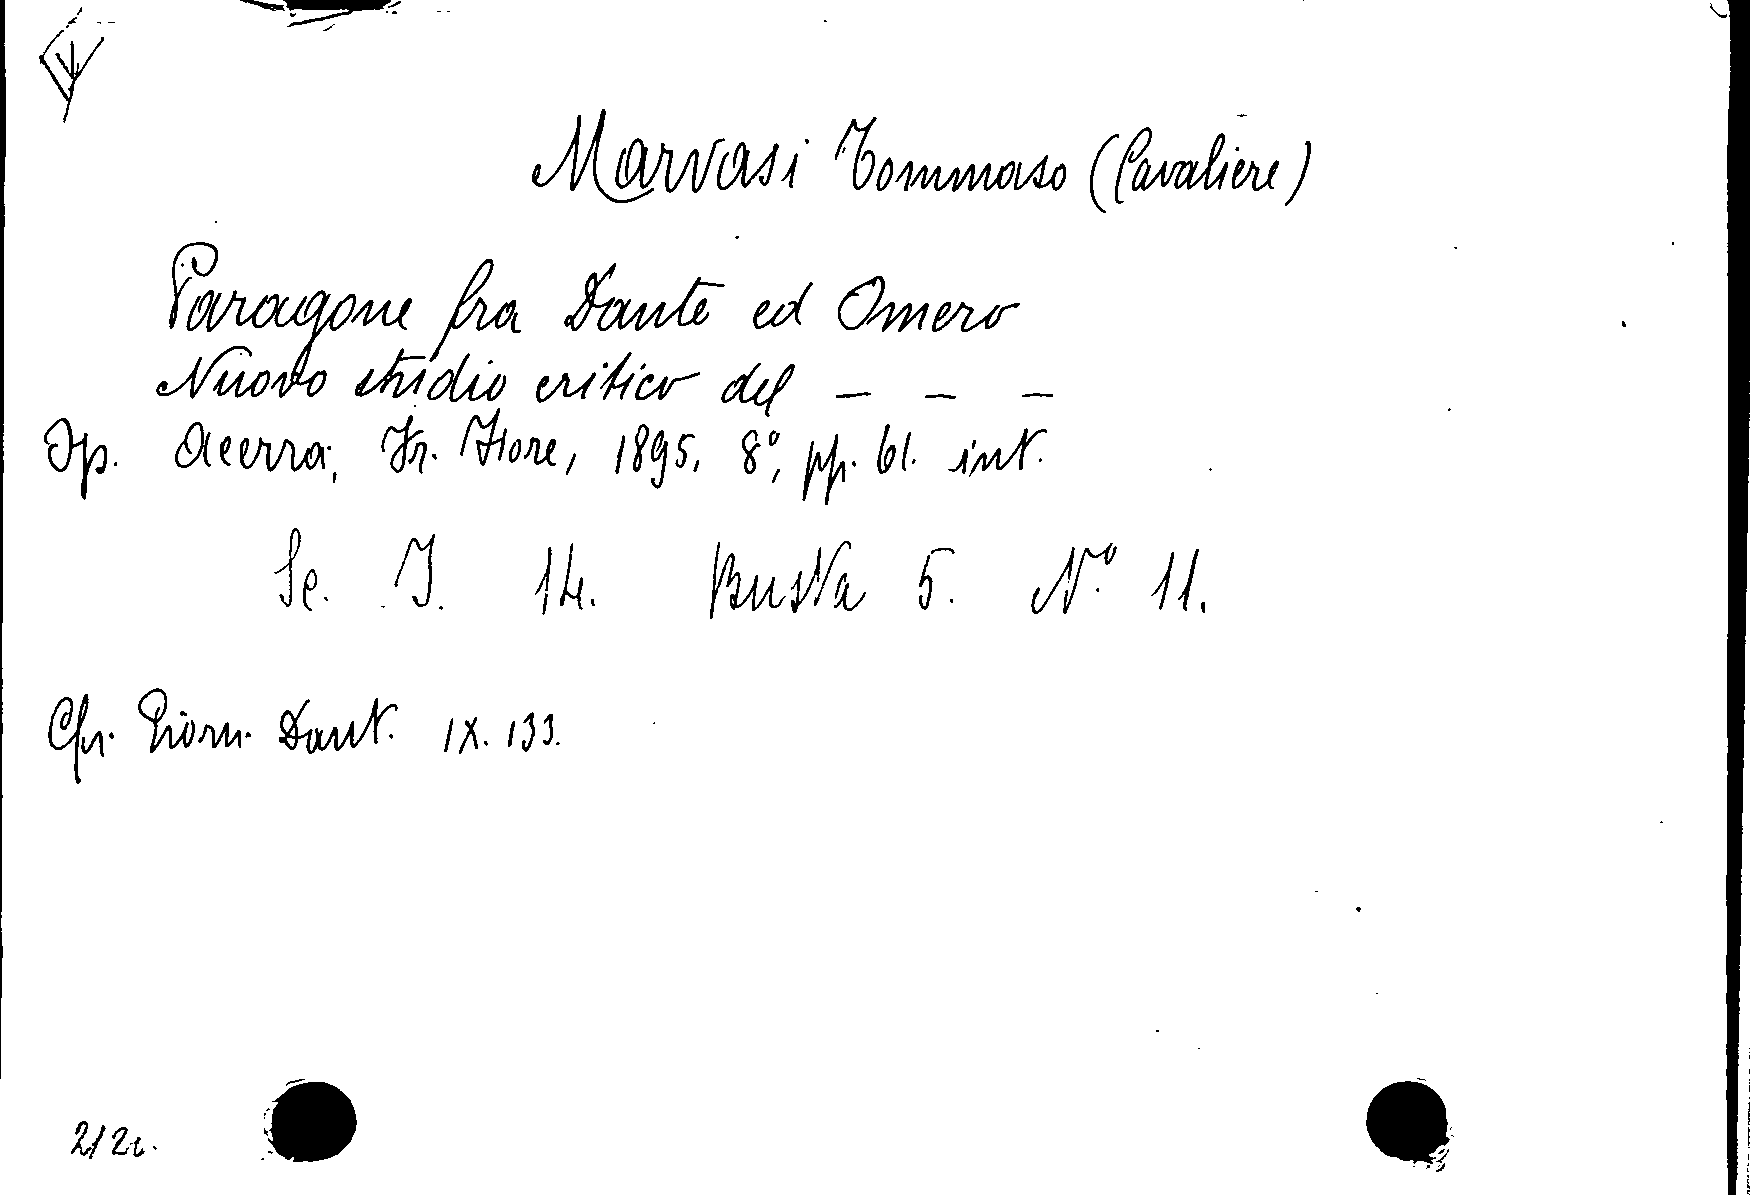 Marvasi Tommaso (Cavaliere)
Paragone fra Dante ed Omero
Nuovo studio critico del _ _ _
Op. Acerra, Fr. Fiore, 1895. 8°, pp. 61. int.
Sc. I. 14. Busta 5. N.° 11.
Cfr. Giorn. Dant. IX. 133.